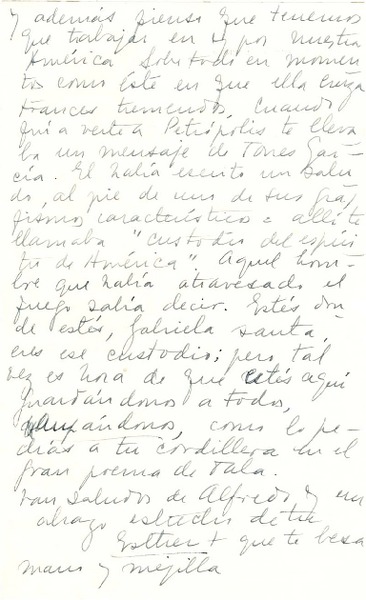 y además pienso que tenemos
que trabajar en y por nuestra
América sobre todo en momen-
tos como éste en que ella cruza
trances tremendos, cuando
fui a verte a Petrópolis te lleva
ba un mensaje de Torres Gar-
cía. El había escrito un salu
do, al pie de uno de sus gra
fismos característicos: allí te
llamaba "custodio del espíri
tu de América". Aquel hom-
bre que había atravesado el
fuego sabía decir. Estés don
de estés, Gabriela santa,
eres ese custodio; pero, tal
vez es hora de que estés aquí
guardándonos a todos,
como lo pe-
días a tu cordillera en el
gran poema de Tala.
Van saludos de Alfredo y un
abrazo de tu
Esther + que te besa
mano y mejilla